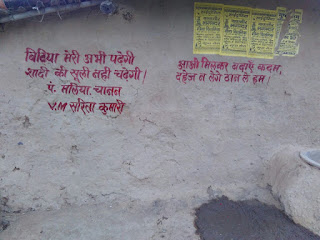 बिटिया मेरी अभी पढेगी
शादी की सूली नही चढेगी।
पं. सलिया. चानन
V.M सरिता कुमारी
आओ मिलकर बढाएं कदम,
दहेज न लेंगे ठान ले हम।